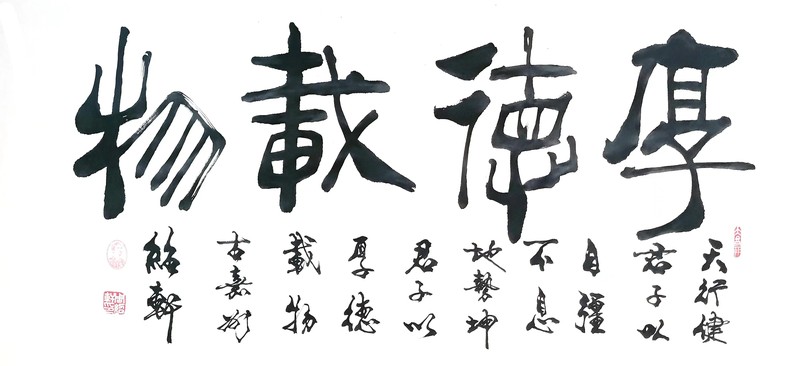 厚德載物
天行健
君子以
自彊
不息
地勢坤
君子以
厚德
載物
古嘉
軒